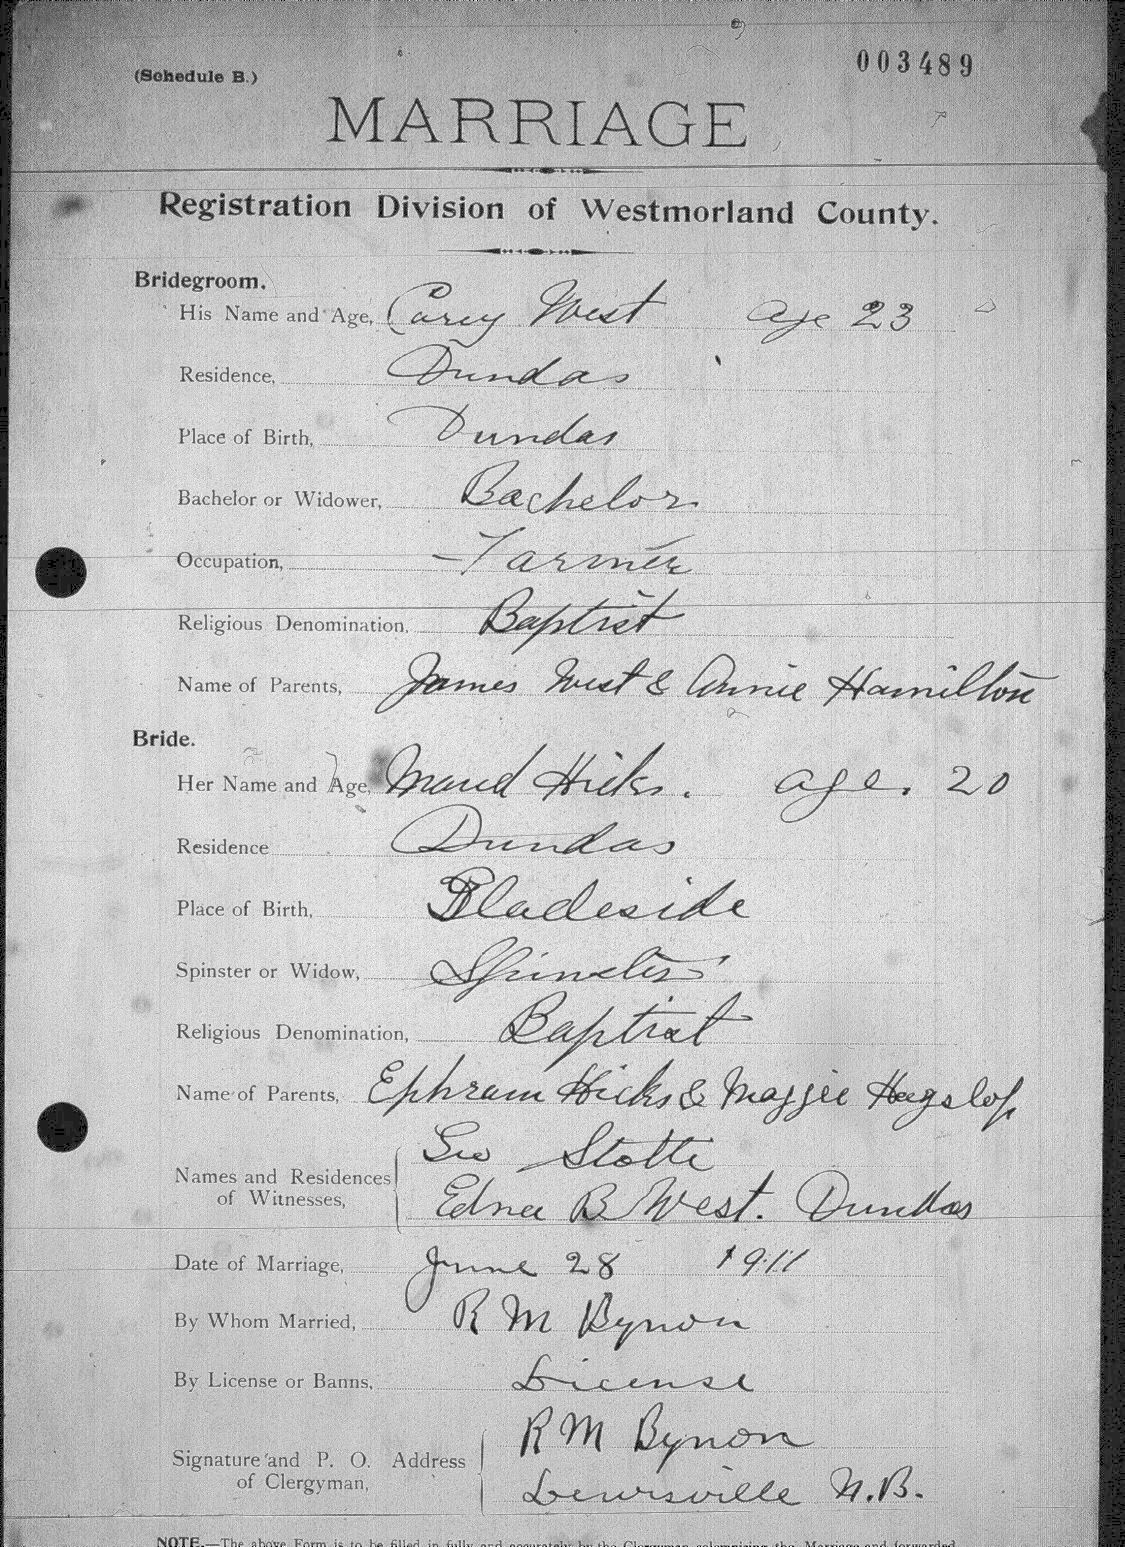 003489
(Schedule B.)
MARRIAGE
Registration Division of Westmorland County.
Bridegroom.
His Name and Age, Carey West age 23
Residence, Dundas
Place of Birth, Dundas
Bachelor or Widower, Bachelor
Occupation, Farmer
Religious Denomination, Baptist
Name of Parents, James West & Annie Hamilton
Bride.
Her Name and Age, Maud Hicks. age. 20
Residence Dundas
Place of Birth, Bladeside
Spinster or Widow, Spinster
Religious Denomination, Baptist
Name of Parents, Ephram Hicks & Maggie Hagslop
Names and Residences of Witnesses, Geo Stotte
Edna B West. Dundas
Date of Marriage, June 28 1911
By Whom Married, R M Bynon
By License or Banns, License
Signature and P. O. Address of Clergyman, R M Bynon
Lewisville N.B.
NOTE.—The above Form is to be filled in fully and accurately by the Clergyman solemnizing the Marriage and forwarded